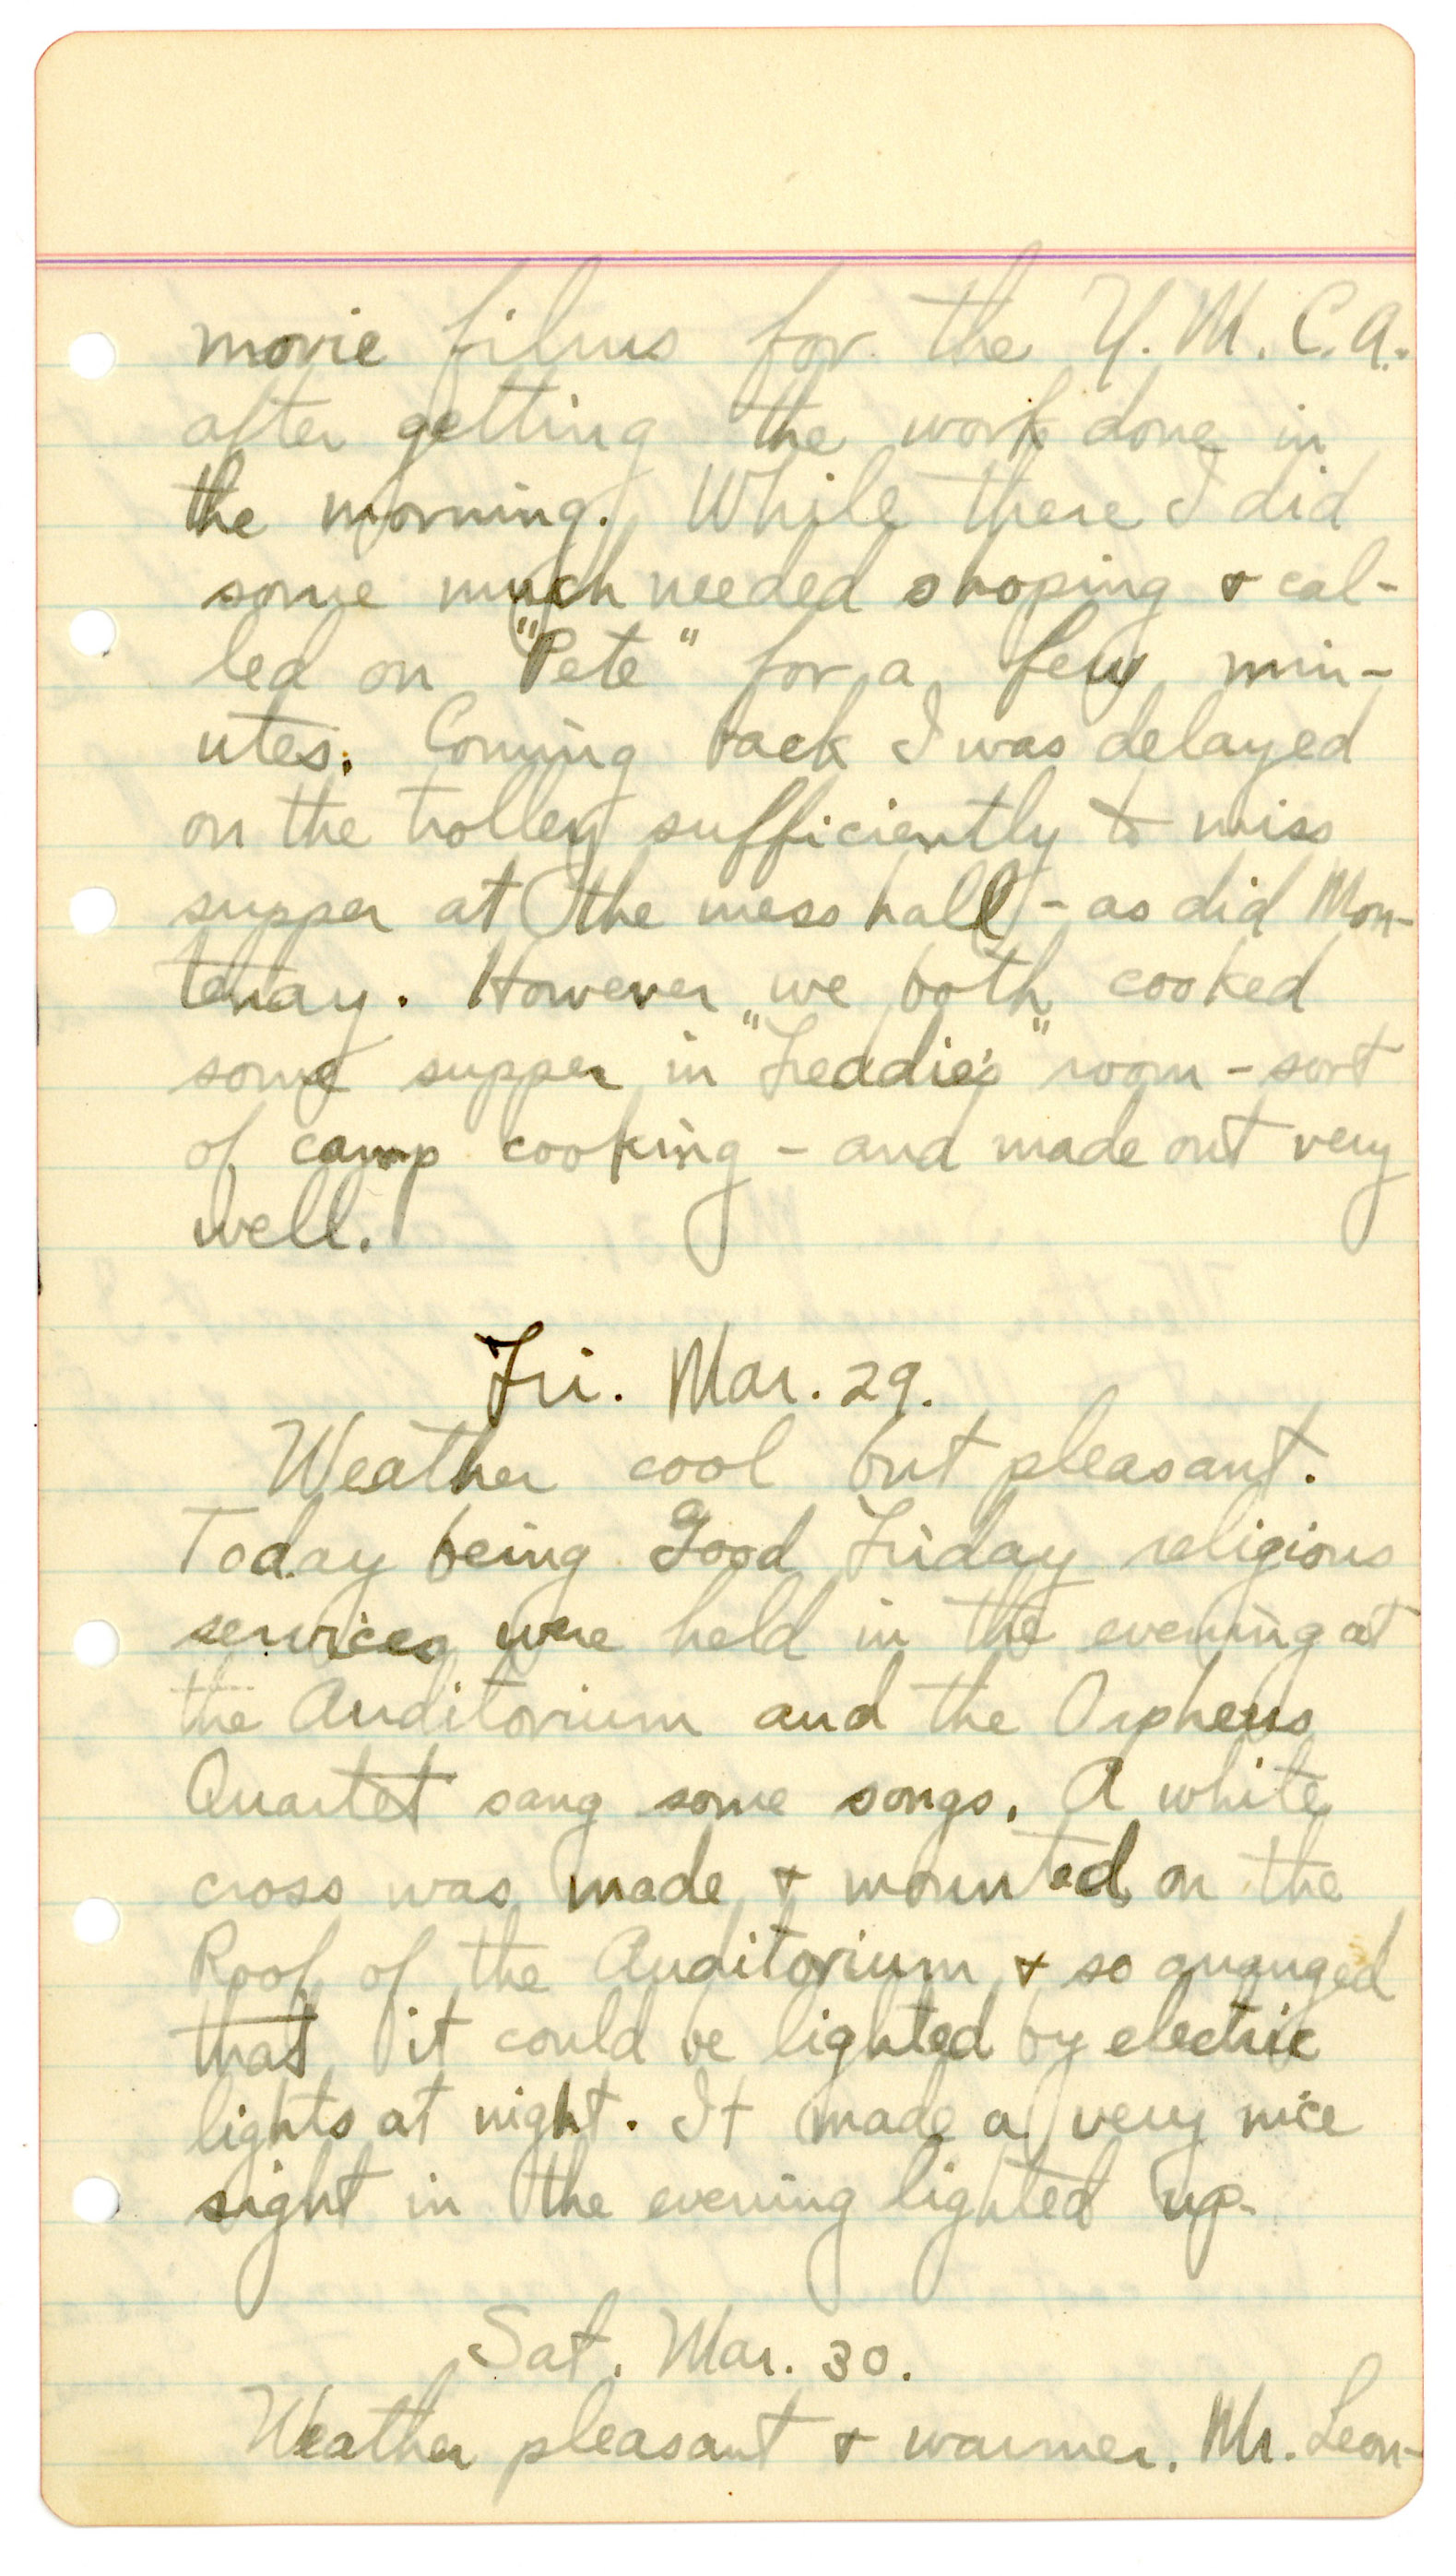 movie films for the Y.M.C.A.
after getting the work done in
the morning. While there I did
some much needed shoping & cal-
led on "Pete" for a few min-
utes. Coming back I was delayed
on the trolley sufficiently to miss
supper at the mess hall - as did Mon-
tenay. However we both cooked
some supper in "Freddie's" room - sort
of camp cooking - and made out very
well.
Fri. Mar. 29.
Weather cool but pleasant.
Today being Good Friday religious
services were held in the evening at
the Auditorium and the Orpheus
Quartet sang some songs. A white
cross was made & mounted on the
Roof of the Auditorium & so arranged
that it could be lighted by electric
lights at night. It made a very nice
sight in the evening lighted up.
Sat. Mar. 30.
Weather pleasant & warmer. Mr. Leon-